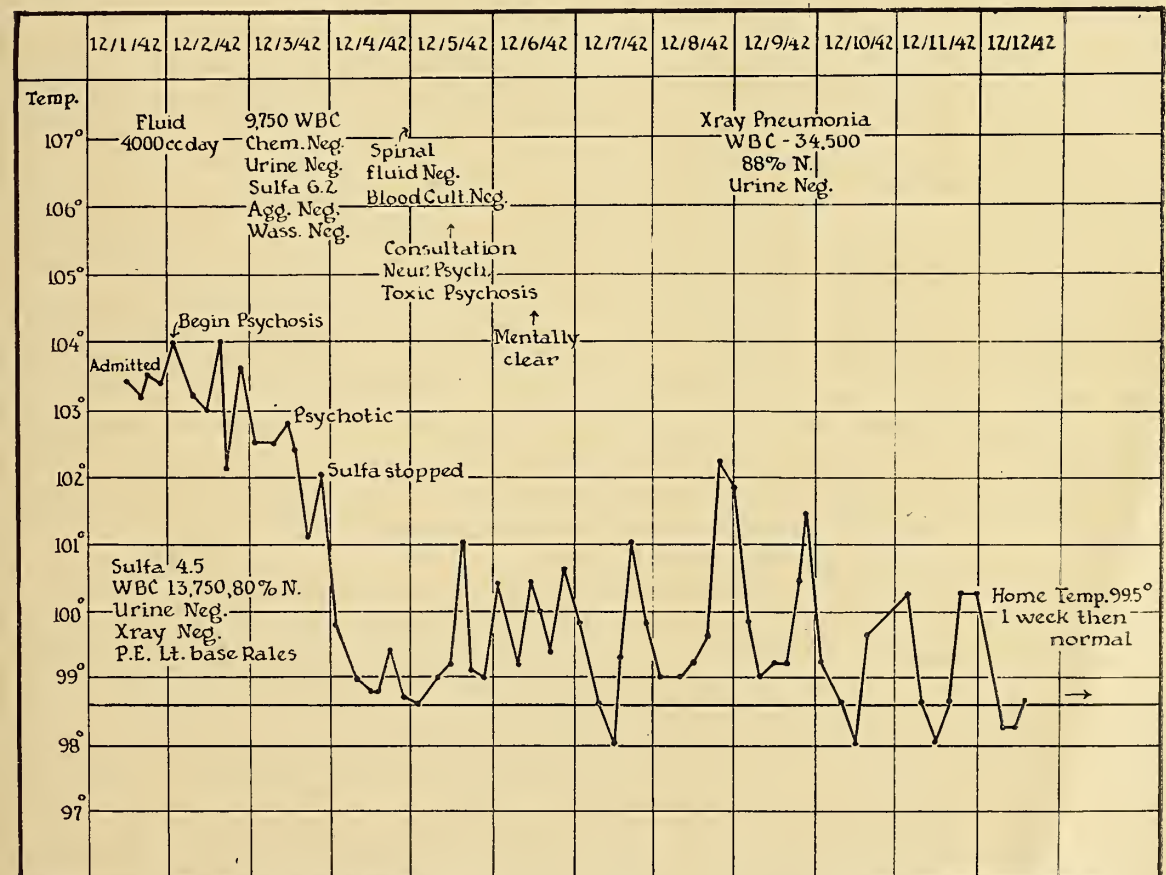 12/1/42 12/2/42 12/3/42 12/4/42 12/5/42 12/6/42 12/7/42 12/8/42 12/9/42 12/10/42 12/11/42 12/12/42
Temp.
107°
106°
105°
104°
103°
102°
101°
100°
99°
98°
97°
Fluid
4000cc day
9,750 WBC
Chem. Neg.
Urine Neg.
Sulfa 6.2
Agg. Neg.
Wass. Neg.
Spinal
fluid Neg.
Blood Cult. Neg.
Consultation
Neur. Psych.
Toxic Psychosis
Mentally
clear
Xray Pneumonia
WBC - 34,500
88% N.
Urine Neg.
Begin Psychosis
Admitted
Psychotic
Sulfa stopped
Sulfa 4.5
WBC 13,750, 80% N.
Urine Neg.
Xray Neg.
P.E. Lt. base Rales
Home Temp. 99.5°
1 week then
normal